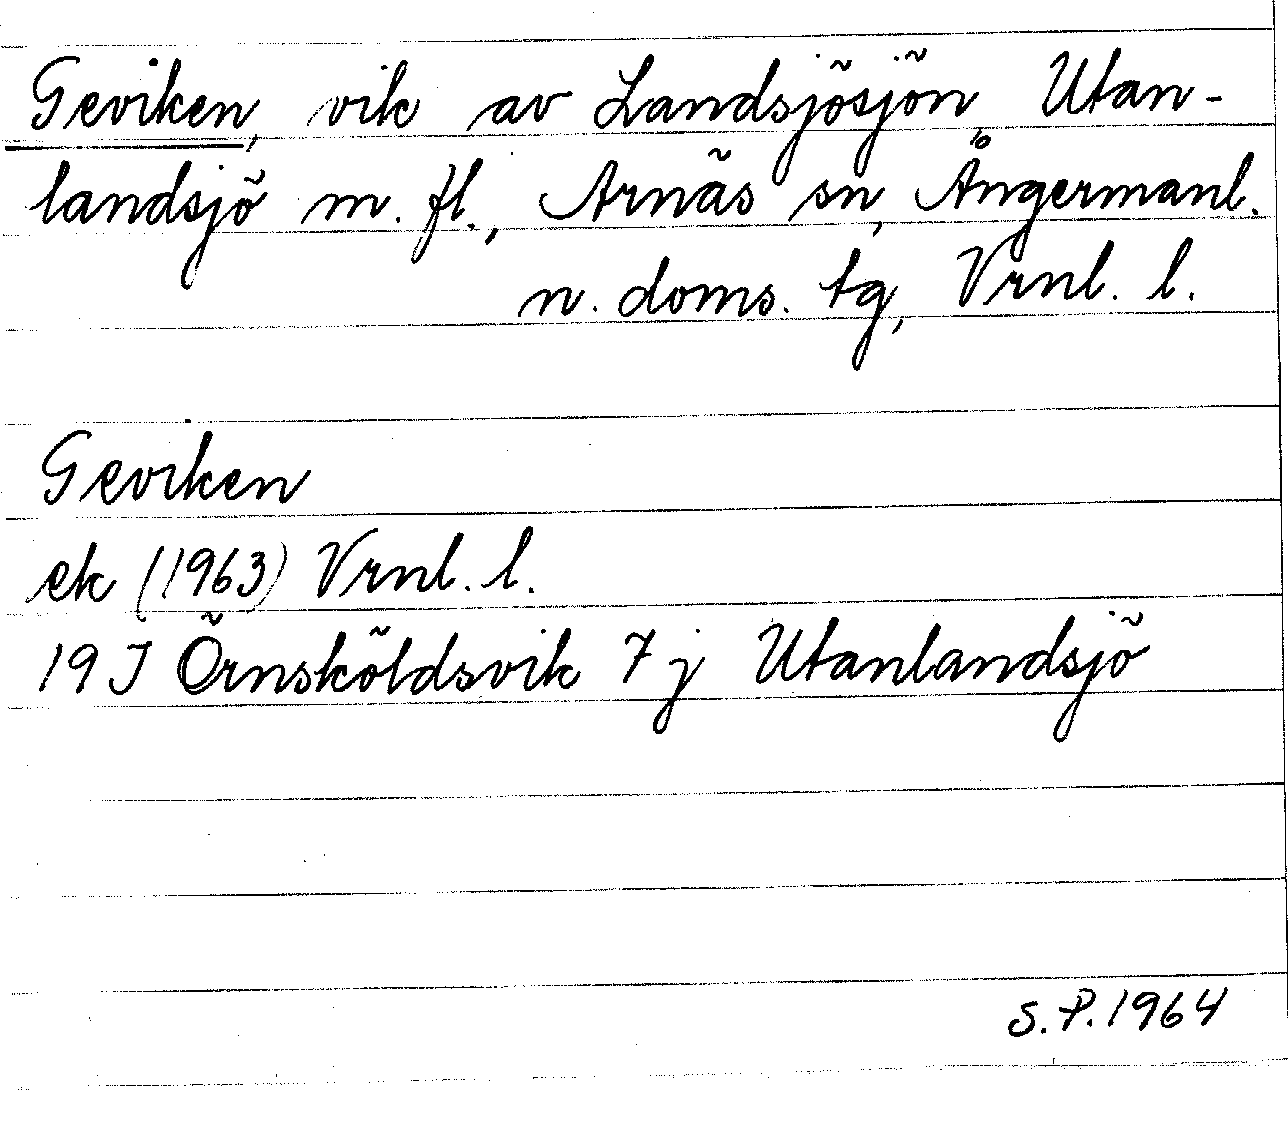 Geviken, vik av Landsjösjön, Utan-
landsjö m. fl., Arnäs sn, Ångermanl.
n. doms. tg, Vrnl. l.
Geviken
ek (1963) Vrnl. l.
19 J Örnsköldsvik 7 j Utanlandsjö
S. P. 1964